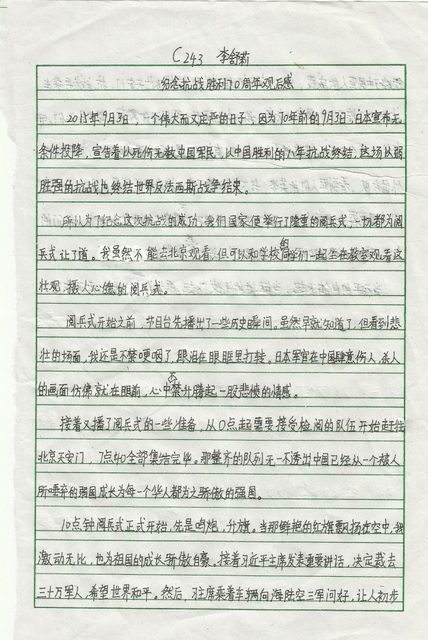 C243 李舒莉
纪念抗战胜利70周年观后感
2015年9月3日,一个伟大而又庄严的日子,因为70年前的9月3日,日本宣布无
条件投降,宣告着以死伤无数中国军民,以中国胜利的八年抗战终结,这场以弱
胜强的抗战也终结世界反法西斯战争结束。
所以为了纪念这次抗战的成功,我们国家便举行了隆重的阅兵式,一切都为阅
兵式让了道。我虽然不能去北京观看,但可以和学校的同学们一起坐在教室观看这
壮观,摄人心魄的阅兵式。
阅兵式开始之前,节目台先播出了一些历史瞬间。虽然早就知道了,但看到悲
壮的场面,我还是不禁哽咽了,眼泪在眼眶里打转。日本军官在中国肆意伤人,杀人
的画面仿佛就在眼前,心中不禁升腾起一股悲愤的情感。
接着又播了阅兵式的一些准备,从0点起需要接受检阅的队伍开始赶往
北京天安门,7点40全部集结完毕。那整齐的队列无一不透出中国已经从一个被人
所唾弃的弱国成长为每一个华人都为之骄傲的强国。
10点钟阅兵式正式开始,先是鸣炮,升旗。当那鲜艳的红旗飘扬在空中,我
激动无比,也为祖国的成长骄傲自豪。接着习近平主席发表重要讲话,决定裁去
三十万军人,希望世界和平。然后,习主席乘着车辆向海陆空三军问好,让人初步